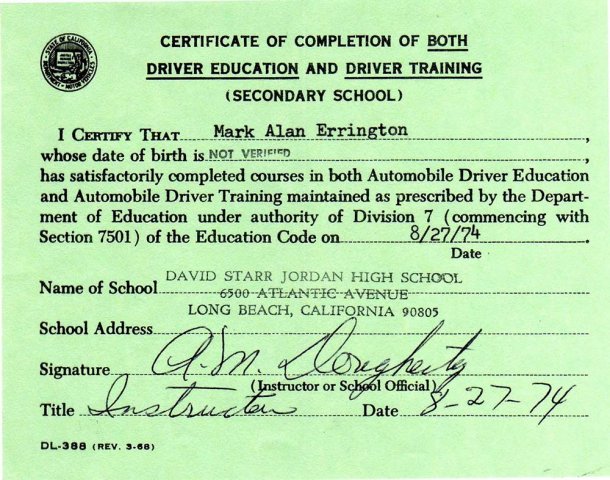 STATE OF CALIFORNIA
DEPARTMENT OF MOTOR VEHICLES
CERTIFICATE OF COMPLETION OF BOTH
DRIVER EDUCATION AND DRIVER TRAINING
(SECONDARY SCHOOL)
I CERTIFY THAT Mark Alan Errington,
whose date of birth is NOT VERIFIED,
has satisfactorily completed courses in both Automobile Driver Education
and Automobile Driver Training maintained as prescribed by the Depart-
ment of Education under authority of Division 7 (commencing with
Section 7501) of the Education Code on 8/27/74
Date
DAVID STARR JORDAN HIGH SCHOOL
Name of School 6500 ATLANTIC AVENUE
LONG BEACH, CALIFORNIA 90805
School Address
Signature A. M. Dougherty
(Instructor or School Official)
Title Instructor Date 8-27-74
DL-388 (REV. 3-68)